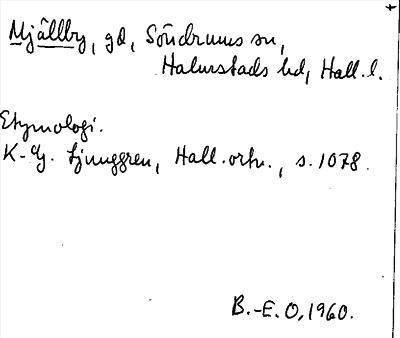 Mjällby, gd, Söndrums sn,
Halmstads hd, Hall. l.
Etymologi.
K.-G. Ljunggren, Hall. ortn., s. 1078.
B.-E. O, 1960.